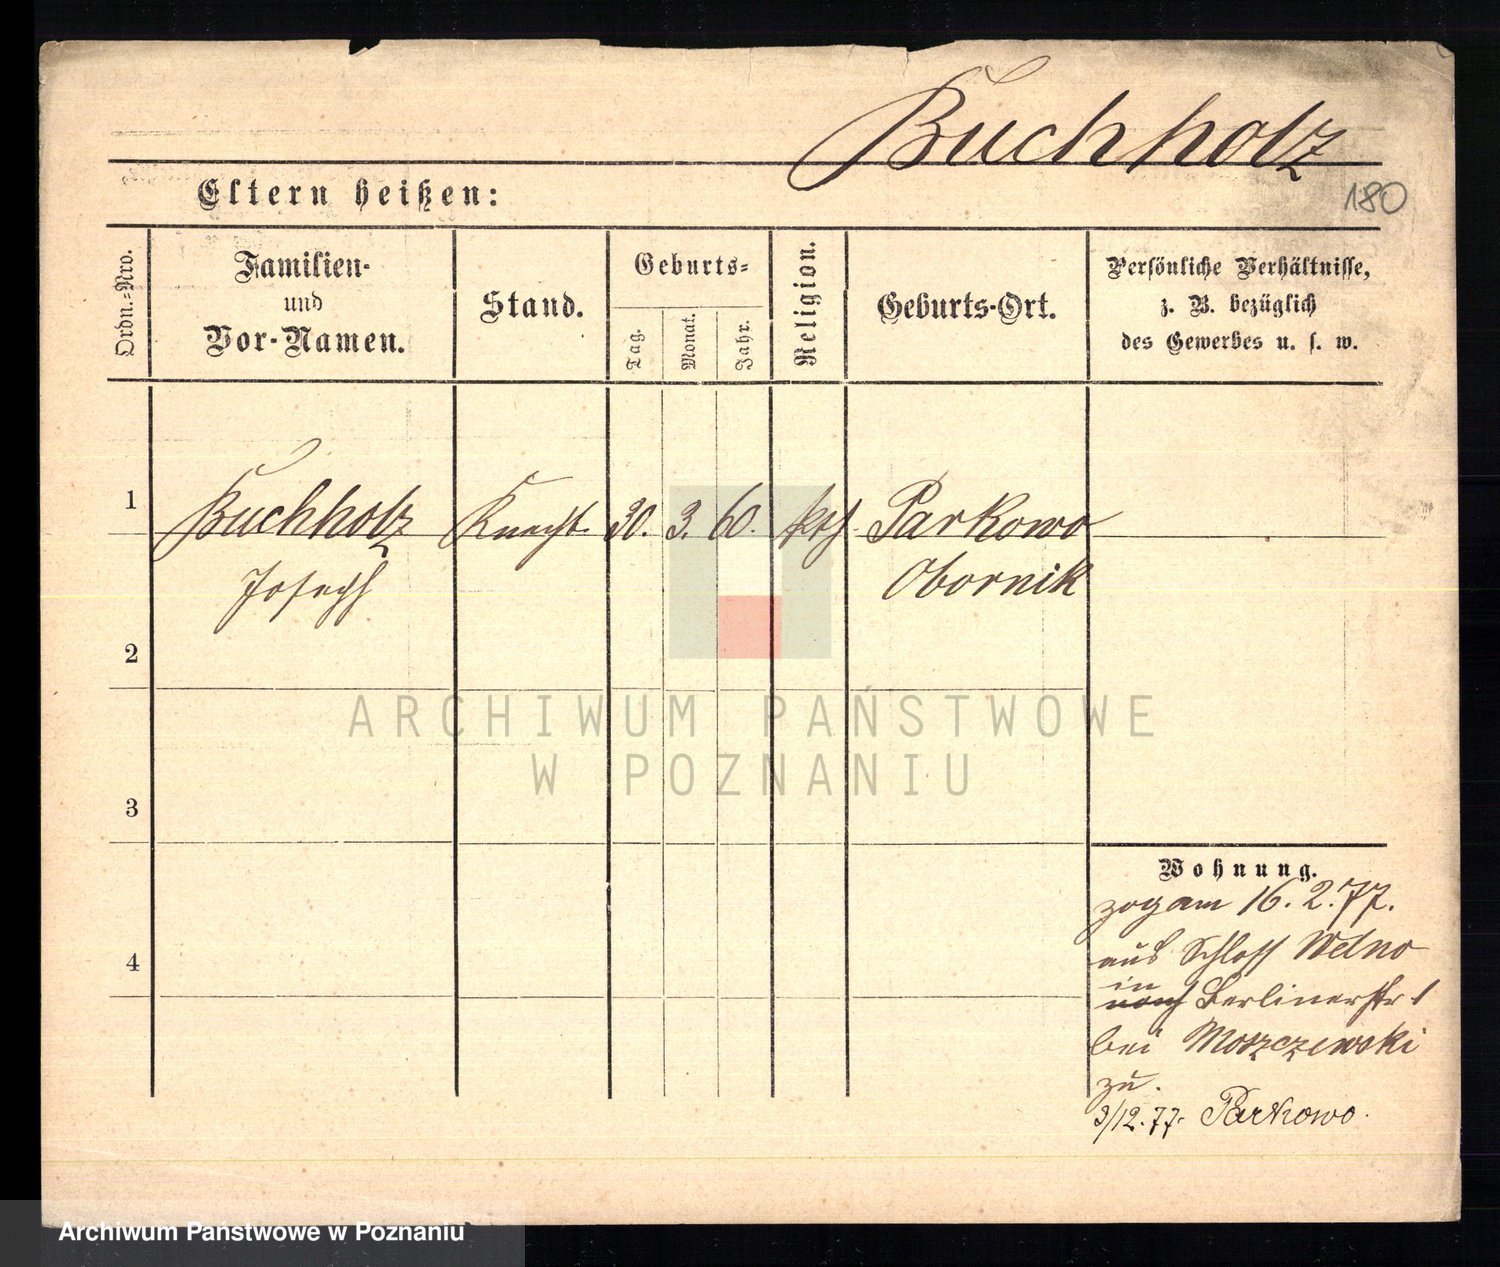 Buchholz
180
Eltern heißen:
Ordn.-Nro.
Familien-
und
Vor-Namen.
Stand.
Geburts-
Tag.
Monat.
Jahr.
Religion.
Geburts-Ort.
Persönliche Verhältnisse,
z. B. bezüglich
des Gewerbes u. s. w.
1 Buchholz Knecht. 30. 3. 60. kth. Parkowo
Joseph Obornik
2
3
4
Wohnung.
zog am 16. 2. 77.
aus Schloss Welno
in
nach Berlinerstr 1
bei Moszczewski
zu.
3/12. 77. Parkowo.
ARCHIWUM PAŃSTWOWE
W POZNANIU
Archiwum Państwowe w Poznaniu